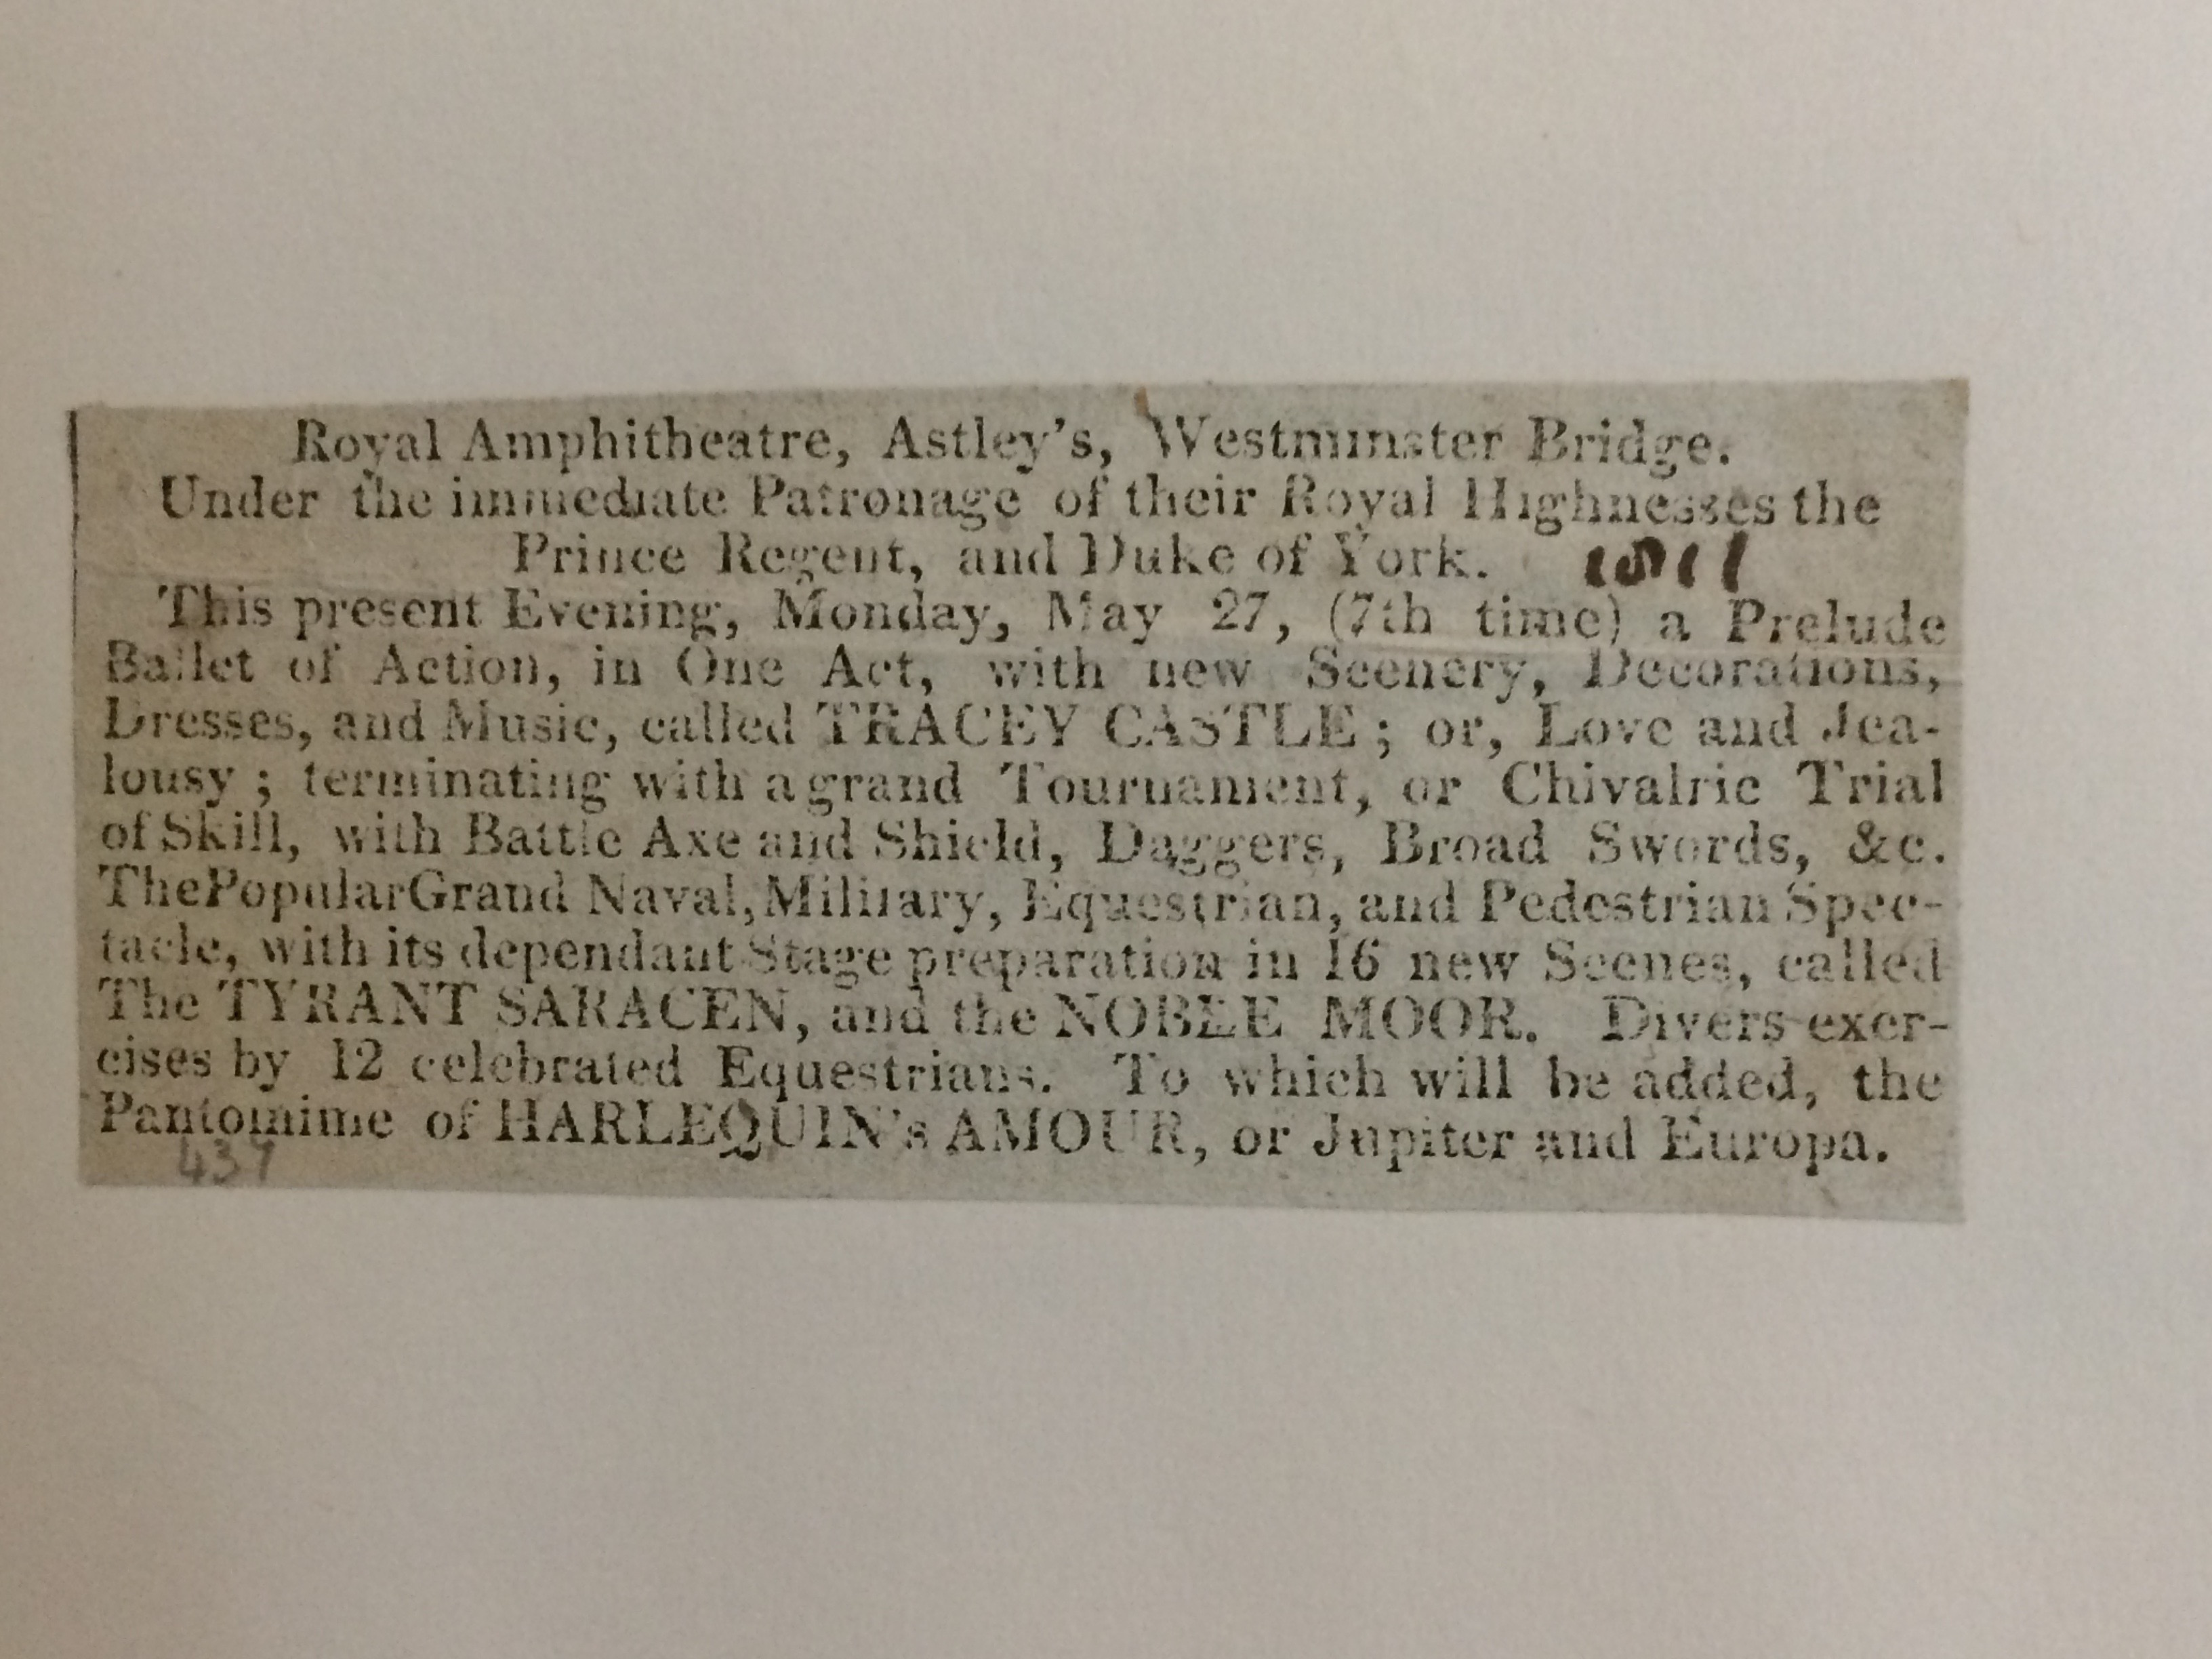 Royal Amphitheatre, Astley's, Westminster Bridge.
Under the immediate Patronage of their Royal Highnesses the
Prince Regent, and Duke of York. 1811
This present Evening, Monday, May 27, (7th time) a Prelude
Ballet of Action, in One Act, with new Scenery, Decorations,
Dresses, and Music, called TRACEY CASTLE; or, Love and Jea-
lousy; terminating with a grand Tournament, or Chivalric Trial
of Skill, with Battle Axe and Shield, Daggers, Broad Swords, &c.
The Popular Grand Naval, Military, Equestrian, and Pedestrian Spec-
tacle, with its dependant Stage preparation in 16 new Scenes, called
The TYRANT SARACEN, and the NOBLE MOOR. Divers exer-
cises by 12 celebrated Equestrians. To which will be added, the
Pantomime of HARLEQUIN's AMOUR, or Jupiter and Europa.
437